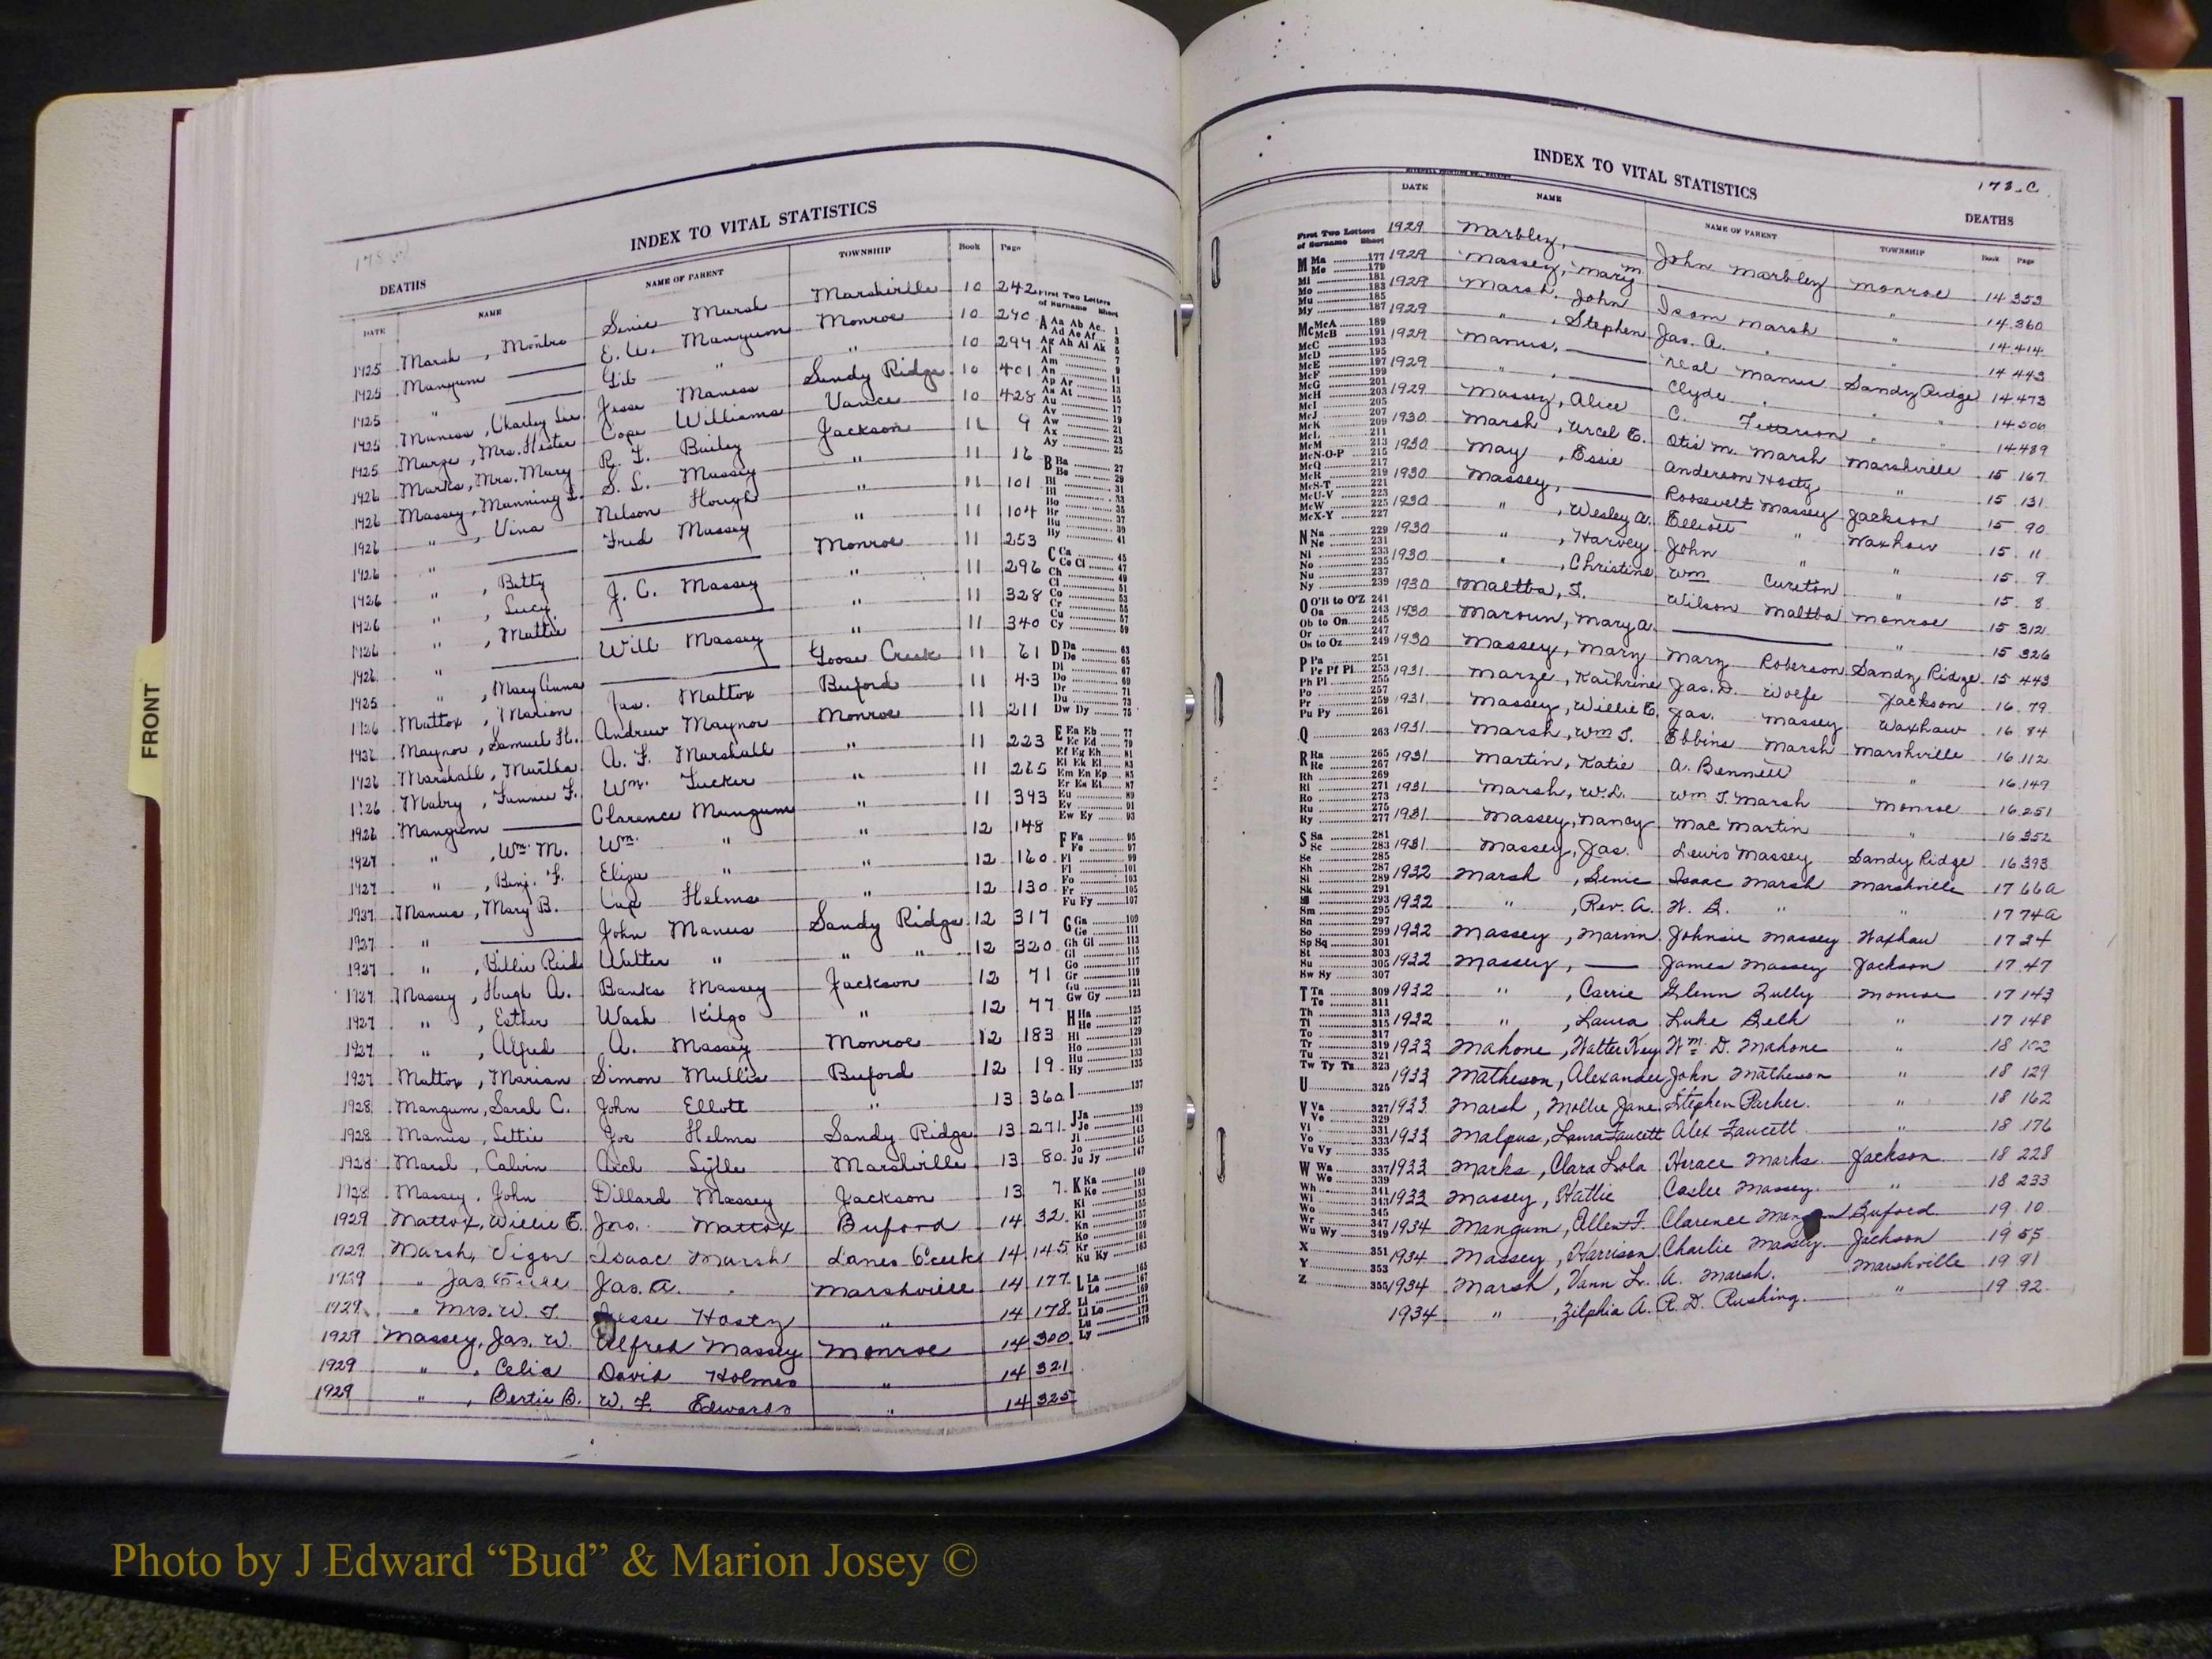 INDEX TO VITAL STATISTICS
DEATHS
DATE NAME NAME OF PARENT TOWNSHIP Book Page
1925 Marsh, Sinie Marsh Marshville 10 242
1925 Mangum —— E. W. Mangum Monroe 10 290
1925 " —— " " 10 294
1925 Maness, Charley Lee Jesse Maness Sandy Ridge 10 401
1925 Marze, Mrs. Hester Cope Williams Vance 10 428
1926 Marks, Mrs. Mary R. F. Bailey Jackson 11 9
1926 Massey, Manning L. S. L. Massey " 11 16
1926 " , Vina Nelson Hough " 11 101
1926 " —— Fred Massey " 11 104
1926 " , Betty —— Monroe 11 253
1926 " , Lucy J. C. Massey " 11 296
1926 " , Mattie —— " 11 328
1926 " —— Will Massey " 11 340
1925 " , Mary Anna —— Goose Creek 11 61
1926 Mattox, Marion Jas. Mattox Buford 11 43
1926 Maynor, Samuel H. Andrew Maynor Monroe 11 211
1926 Marshall, Martha A. F. Marshall " 11 223
1926 Mabry, Fannie F. Wm. Tucker " 11 265
1926 Mangum —— Clarence Mangum " 11 393
1927 " , Wm. M. Wm. " " 12 148
1927 " , Benj. F. Eliza " " 12 160
1927 Manus, Mary B. Cap Helms " 12 130
1927 " —— John Manus Sandy Ridge 12 317
1927 " , Billie Reid Walter " " " 12 320
1927 Massey, Hugh A. Banks Massey Jackson 12 71
1927 " , Esther Wash Kilgo " 12 77
1927 " , Alfred A. Massey Monroe 12 183
1927 Mattox, Marian Simon Mullis Buford 12 19
1928 Mangum, Saral C. John Ellott " 13 360
1928 Manus, Lettie Joe Helms Sandy Ridge 13 271
1928 Marsh, Calvin Arch Marshville 13 80
1928 Massey, John Dillard Massey Jackson 13 7
1929 Mattox, Willie E. Jno. Mattox Buford 14 32
1929 Marsh, Vigor Isaac Marsh Lanes Creek 14 145
1929 " Jas. Jas. A. " Marshville 14 177
1929 " Mrs. W. T. Jesse Hasty " 14 178
1929 Massey, Jas. W. Alfred Massey Monroe 14 300
1929 " , Celia David Holmes " 14 321
1929 " , Bertie B. W. F. Edwards " 14 325
First Two Letters
of Surname Sheet
A Aa Ab Ac 1
Ad Ae Af 3
Ag Ah Ai Ak 5
Al 7
Am 9
An 11
Ap Ar 13
As At 15
Au 17
Av 19
Aw 21
Ax 23
Ay 25
B Ba 27
Be 29
C Ca 45
Ce Ci 47
Cy 59
D Da 63
De 65
Di 67
Do 69
Dr 71
Du 73
Dw Dy 75
E Ea Eb 77
Ec Ed 79
Ef Eg Eh 81
Ei Ek El 83
Em En Ep 85
Er Es Et 87
Eu 89
Ev 91
Ew Ey 93
F Fa 95
Fe 97
Fo 103
Fr 105
Fu Fy 107
G Ga 109
Ge 111
Gh Gi 113
Gl 115
Go 117
Gr 119
Gu 121
Gw Gy 123
H Ha 125
He 127
Hi 129
Ho 131
Hu 133
Hy 135
I 137
J Ja 139
Je 141
Ji 143
Jo 145
Ju Jy 147
K Ka 149
Ke 151
Ki 153
Kl 157
Kn 159
Ko 160
Kr 161
Ku Ky 163
L La 165
Le 167
INDEX TO VITAL STATISTICS
178-C
DEATHS
DATE NAME NAME OF PARENT TOWNSHIP Book Page
1929 Marbley, —— John Marbley Monroe 14 353
1929 Massey, Mary M. —— " 14 360
1929 Marsh, John Isom Marsh " 14 414
1929 " , Stephen Jas. A. " " 14 443
1929 Manus, —— Neal Manus Sandy Ridge 14 473
1929 " , —— Clyde " " " 14 506
1929 Massey, Alice C. " " 14 489
1930 Marsh, Ercel E. Otis M. Marsh Marshville 15 167
1930 May, Essie Anderson Hasty " 15 131
1930 Massey, —— Roosevelt Massey Jackson 15 90
1930 " , Wesley A. Elliott " Waxhaw 15 11
1930 " , Harvey John " " 15 9
1930 " , Christine Wm Cureton " 15 8
1930 Maltba, T. Wilson Maltba Monroe 15 312
1930 Maroun, Mary A. —— " 15 326
1930 Massey, Mary Mary Roberson Sandy Ridge 15 443
1931 Marze, Kathrine Jas. D. Wolfe Jackson 16 79
1931 Massey, Willie E. Jas. Massey Waxhaw 16 84
1931 Marsh, Wm T. Ebbins Marsh Marshville 16 112
1931 Martin, Katie A. Bennett " 16 149
1931 Marsh, W. L. Wm T. Marsh Monroe 16 251
1931 Massey, Nancy Mac Martin " 16 352
1931 Massey, Jas. Lewis Massey Sandy Ridge 16 393
1932 Marsh, Senie Isaac Marsh Marshville 17 66a
1932 " , Rev. A. H. B. " " 17 74a
1932 Massey, Marvin Johnsie Massey Waxhaw 17 34
1932 Massey, —— James Massey Jackson 17 47
1932 " , Carrie Glenn Tully Monroe 17 143
1932 " , Laura Luke Belk " 17 148
1933 Mahone, Walter Key Wm. D. Mahone " 18 102
1933 Matheson, Alexander John Matheson " 18 129
1933 Marsh, Mollie Jane Stephen Parker " 18 162
1933 Malpus, Laura Faucett Alex Faucett " 18 176
1933 Marks, Clara Lola Horace Marks Jackson 18 228
1933 Massey, Hattie Caslee Massey " 18 233
1934 Mangum, Allen F. Clarence Mangum Buford 19 10
1934 Massey, Harrison Charlie Massey Jackson 19 55
1934 Marsh, Vann Lr. A. Marsh Marshville 19 91
1934 " , Zilphia A. R. D. Rushing " 19 92
First Two Letters
of Surname Sheet
M Ma 177
Me 179
Mi 181
Mo 183
Mu 185
My 187
Mc McA 189
McB 191
McC 193
McD 195
McE 197
McF 199
McG 201
McH 203
McI 205
McJ 207
McK 209
McL 211
McM 213
McN-O-P 215
McQ 217
McR 219
McS-T 221
McU-V 223
McW 225
McX-Y 227
N Na 229
Ne 231
Ni 233
No 235
Nu 237
Ny 239
O O'B to O'Z 241
Oa 243
Ob to On 245
Or 247
Os to Oz 249
P Pa 251
Pe Pf Pi 253
Ph Pl 255
Po 257
Pr 259
Pu Py 261
Q 263
R Ra 265
Re 267
Rh 269
Ri 271
Ro 273
Ru 275
Ry 277
S Sa 281
Sc 283
Se 285
Sh 287
Si 289
Sk 291
Sl 293
Sm 295
Sn 297
So 299
Sp Sq 301
St 303
Su 305
Sw Sy 307
T Ta 309
Te 311
Th 313
Ti 315
To 317
Tr 319
Tu 321
Tw Ty Tz 323
U 325
V Va 327
Ve 329
Vi 331
Vo 333
Vu Vy 335
W Wa 337
We 339
Wh 341
Wi 343
Wo 345
Wr 347
Wu Wy 349
X 351
Y 353
Z 355
FRONT
Photo by J Edward “Bud” & Marion Josey ©